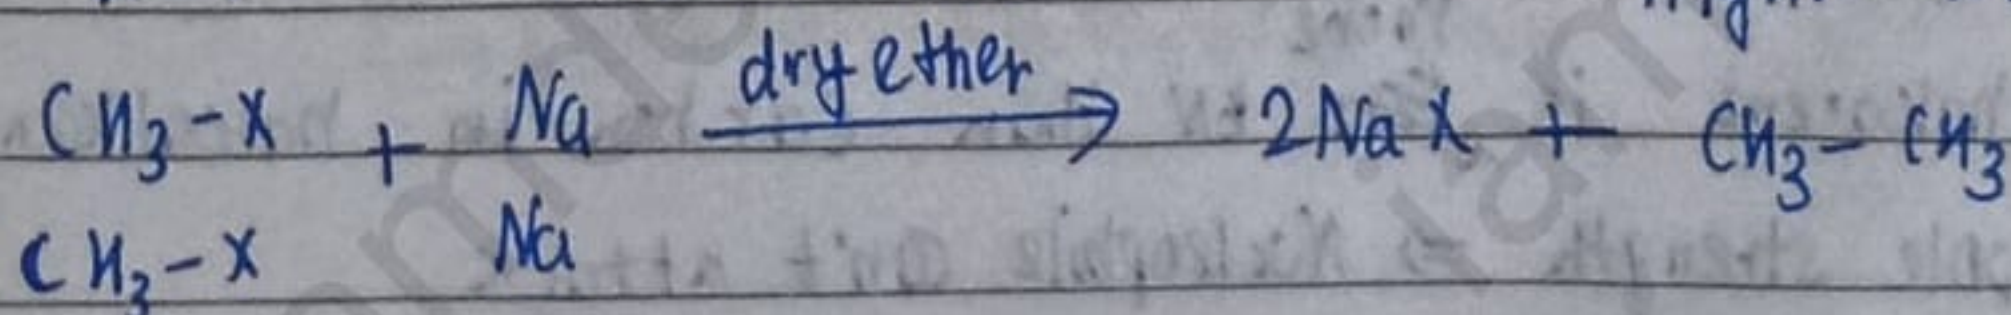 CH3-X + Na dry ether → 2NaX + CH3-CH3
CH3-X Na